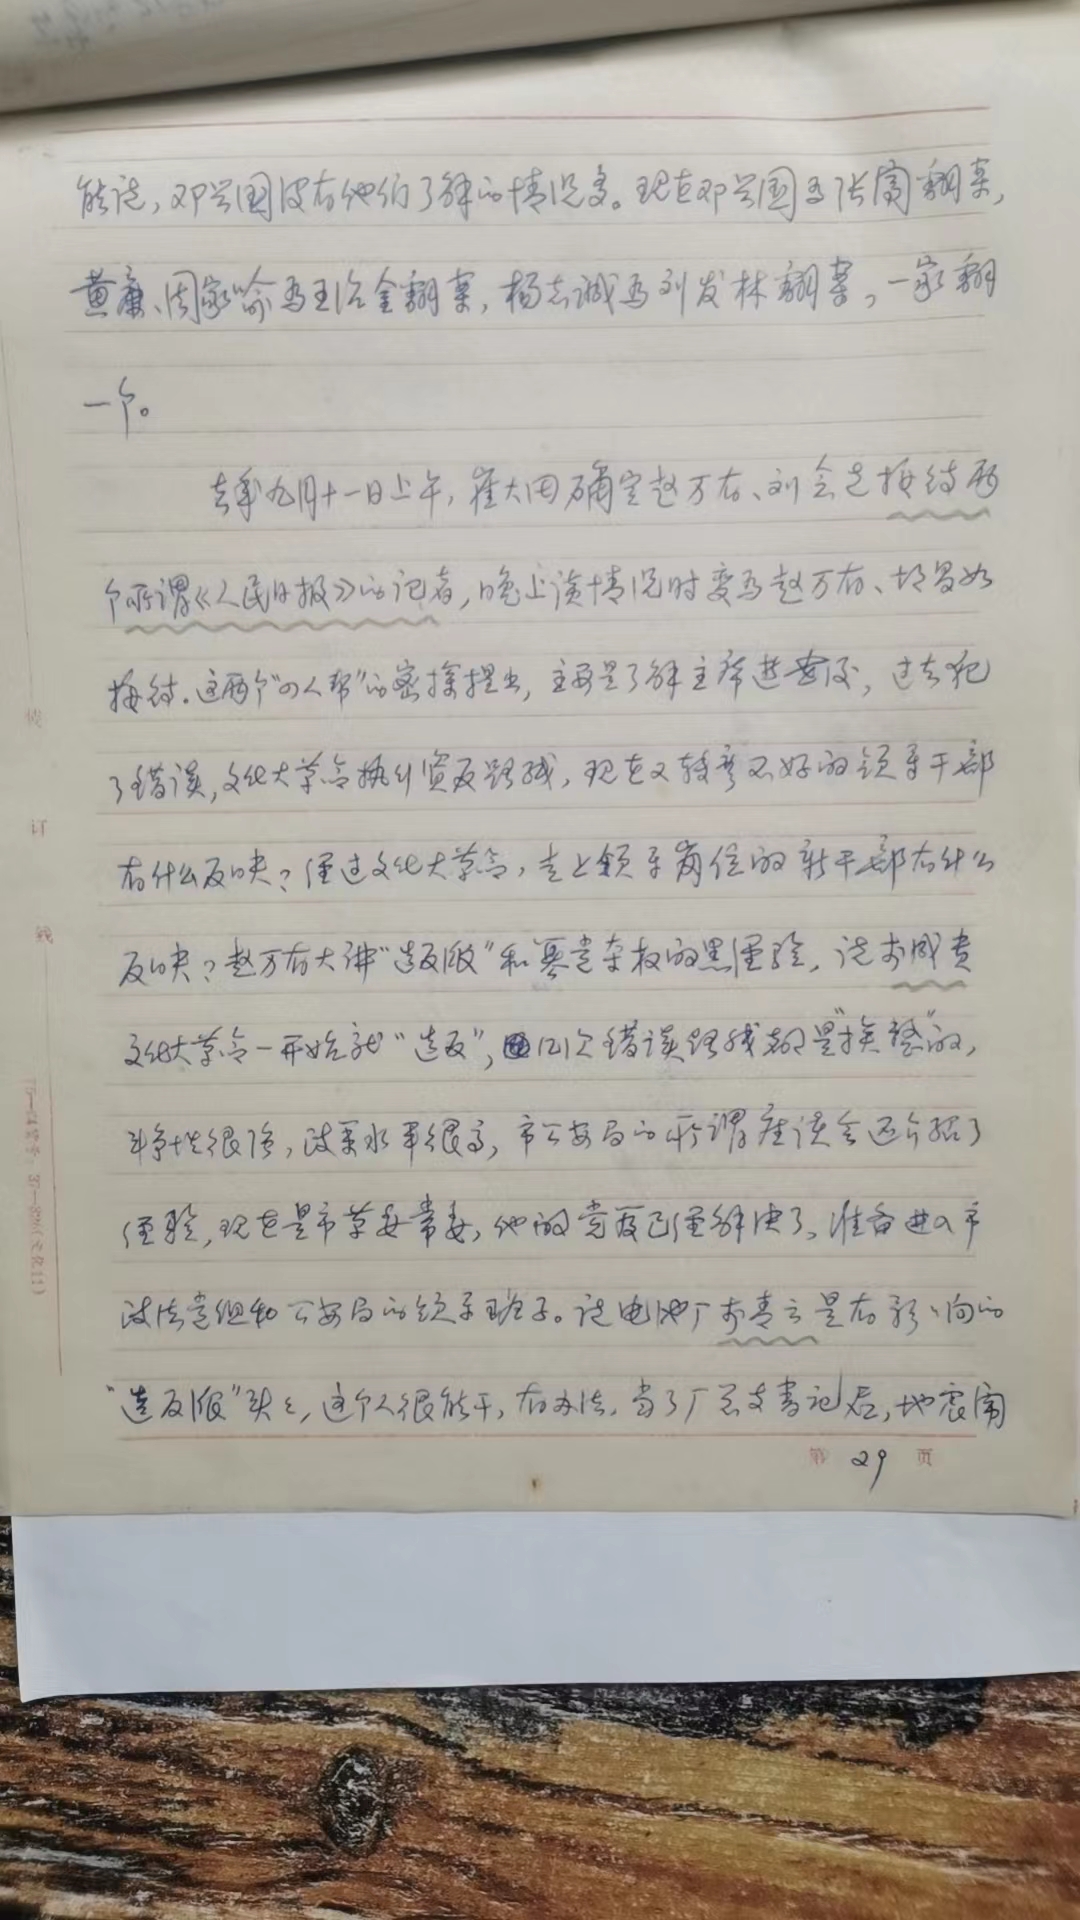 能说，邓兴国没有他们了解的情况多。现在邓兴国为张闯翻案，
黄廉、周家喻为王治金翻案，杨志诚为刘发林翻案，一家翻
一个。
去年九月十一日上午，崔大田确定赵万有、刘会之接待两
个所谓《人民日报》的记者，晚上谈情况时变为赵万有、
接待。这两个“四人帮”的密探提出，主要是了解主席进安后，过去犯
了错误，文化大革命执行资反路线，现在又转弯不好的领导干部
有什么反映？经过文化大革命，走上领导岗位的新干部有什么
反映？赵万有大讲“造反派”和篡党夺权的黑经验，说李成贵
文化大革命一开始就“造反”，几次错误路线都是“挨整”的，
斗争性很强，政策水平很高，市公安局的所谓座谈会还介绍了
经验，现在是市革委常委，他的党籍已经解决了，准备进入市
政法党组和公安局的领导班子。说电池厂李青云是有影响的
“造反派”头头，这个人很能干，有办法，当了厂总支书记后，地震闹
第 29 页
订
线